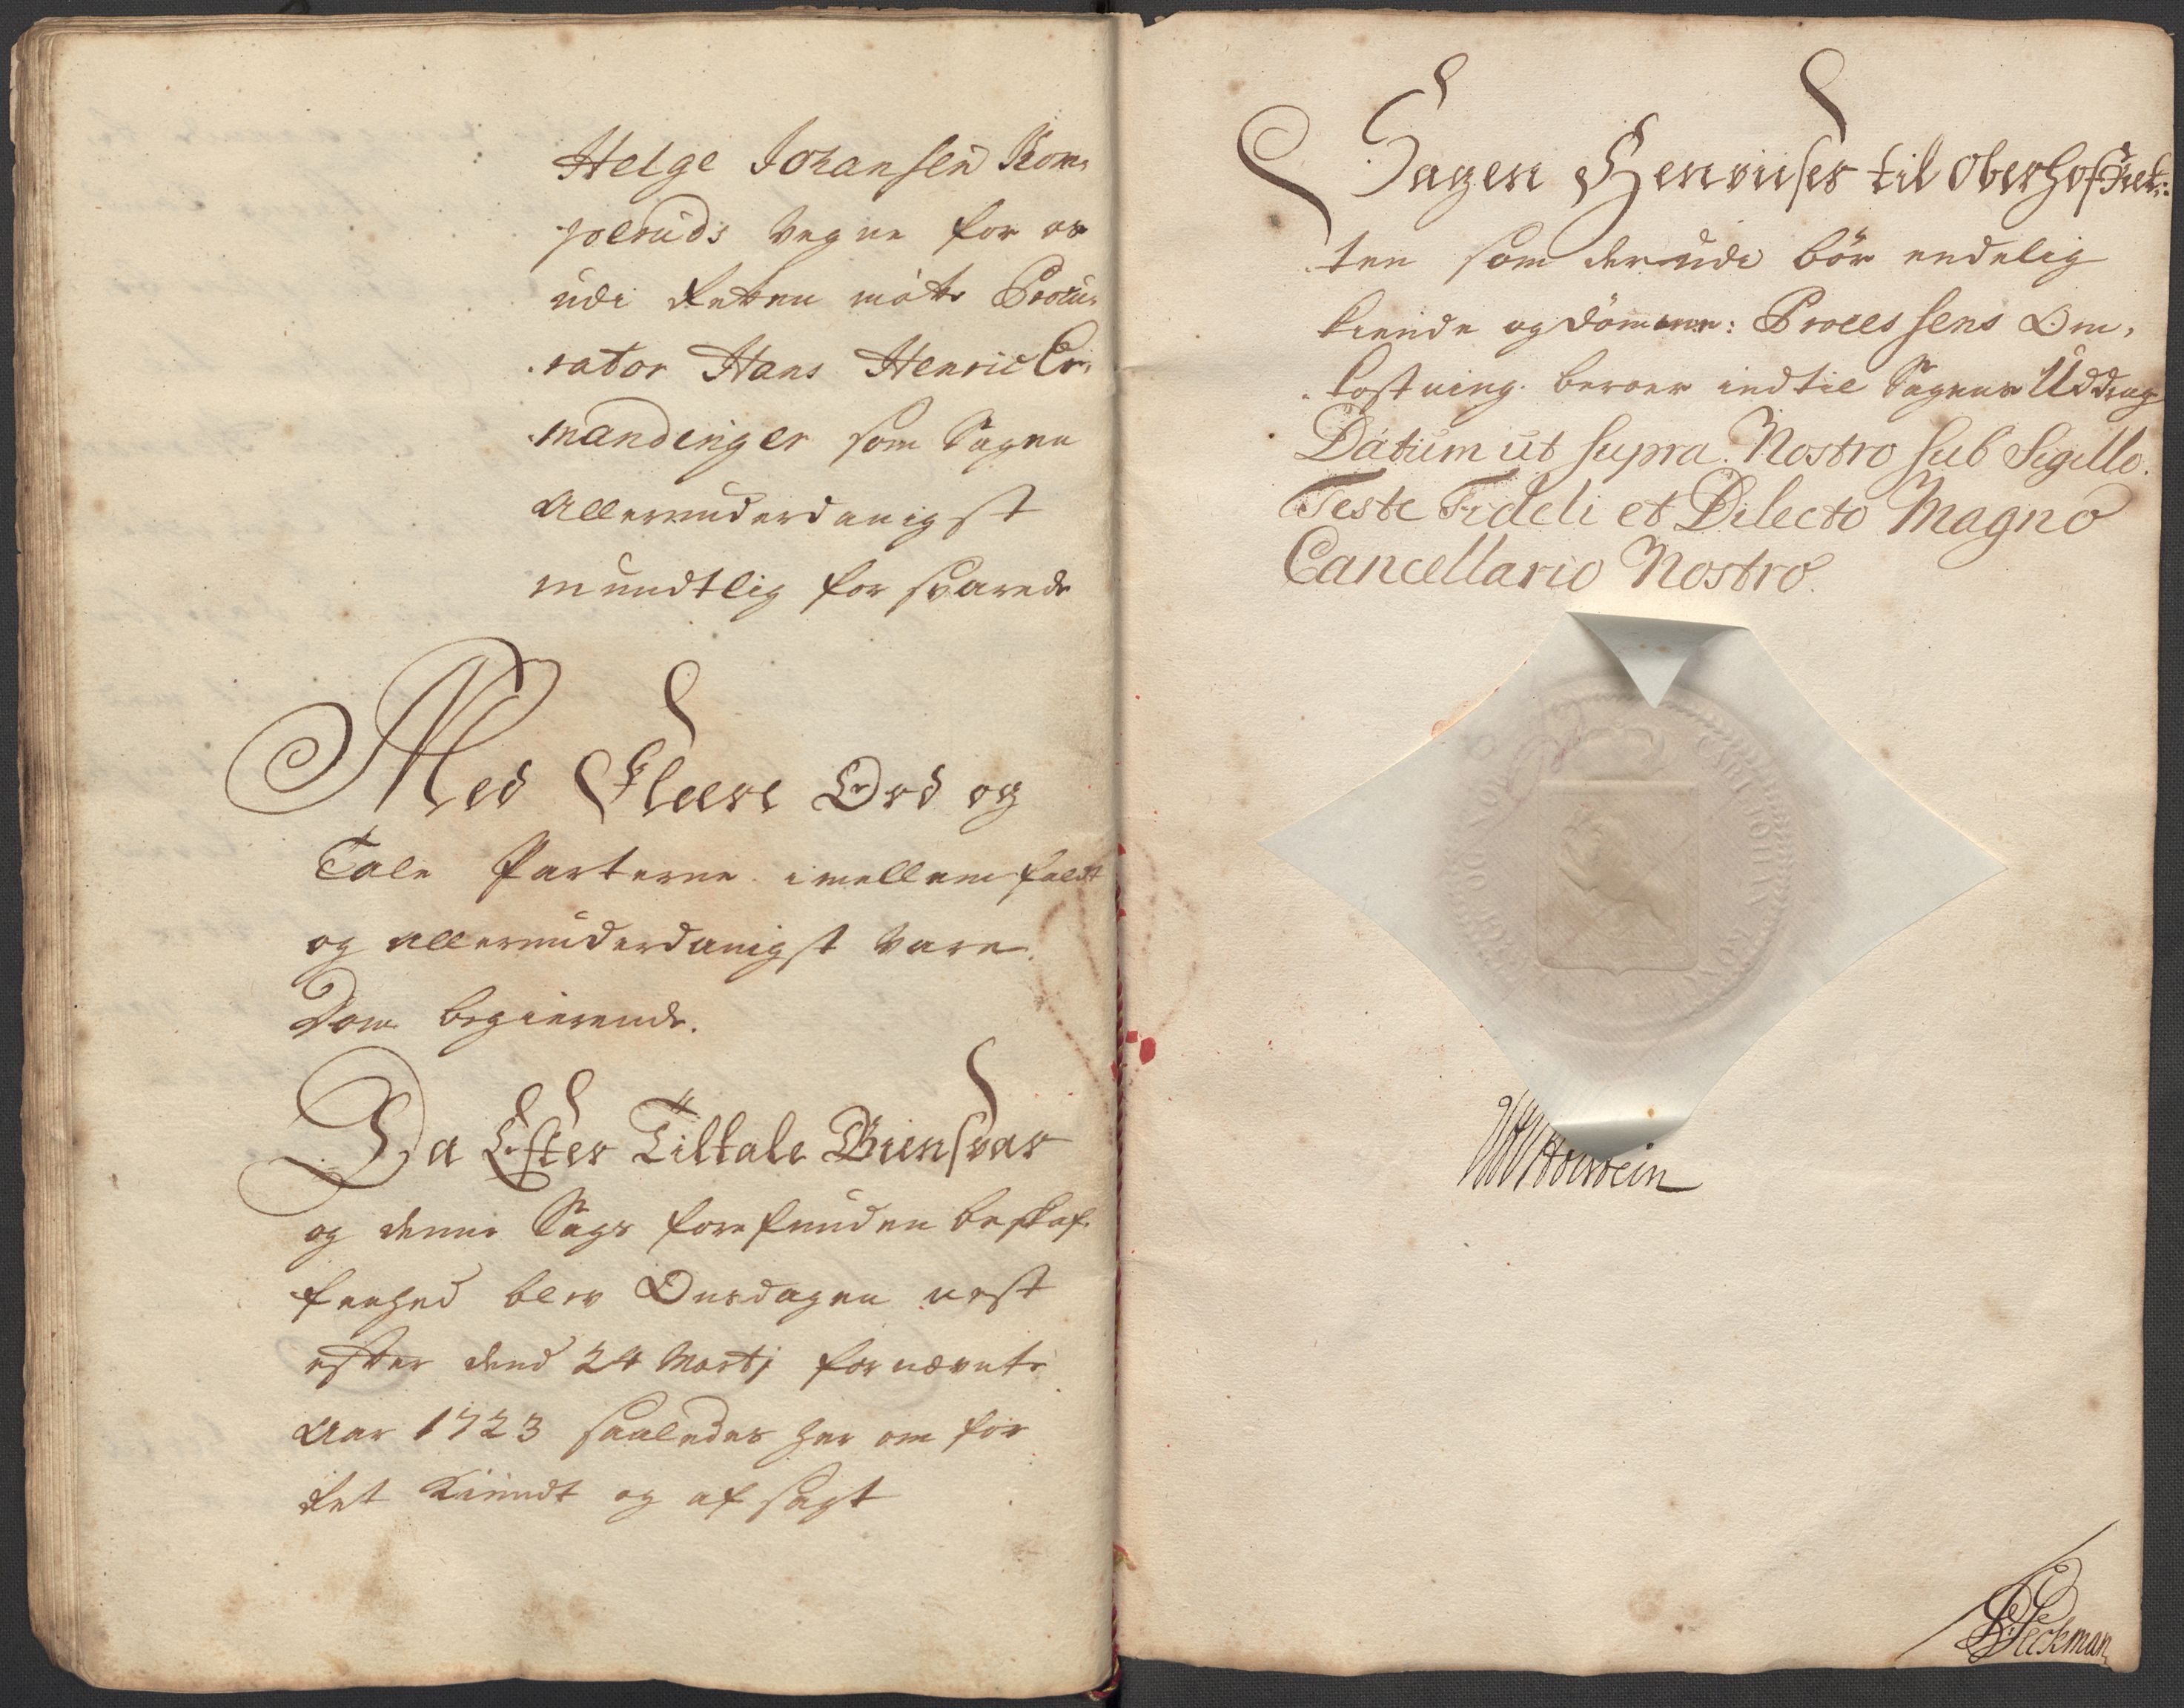 Helge Johansen Rom-
poeruds Vegne for os
udi Retten mötte Procu-
rator Hans Henric Er-
mandinger som Sagen
Allerunderdanigst
mundtlig forsvarede
Med Fleere Ord og
Tale Parterne imellem faldt
og allerunderdanigst vare
Dom begierende.
Da Efter Tiltale Giensvar
og denne Sags forefunden beskaf-
fenhed blev Onsdagen nest
efter dend 24 Martj fornævnte
Aar 1723 saaledes her om for
Ret Kiendt og afsagt
Sagen Henviises til OberhofRet-
ten som derudi bör endelig
kiende og dömme: Processens Om-
kostning beroer indtil Sagens Uddrag
Datum ut supra. Nostro sub Sigillo.
Teste Fideli et Dilecto Magno
Cancellario Nostro.
Holstein